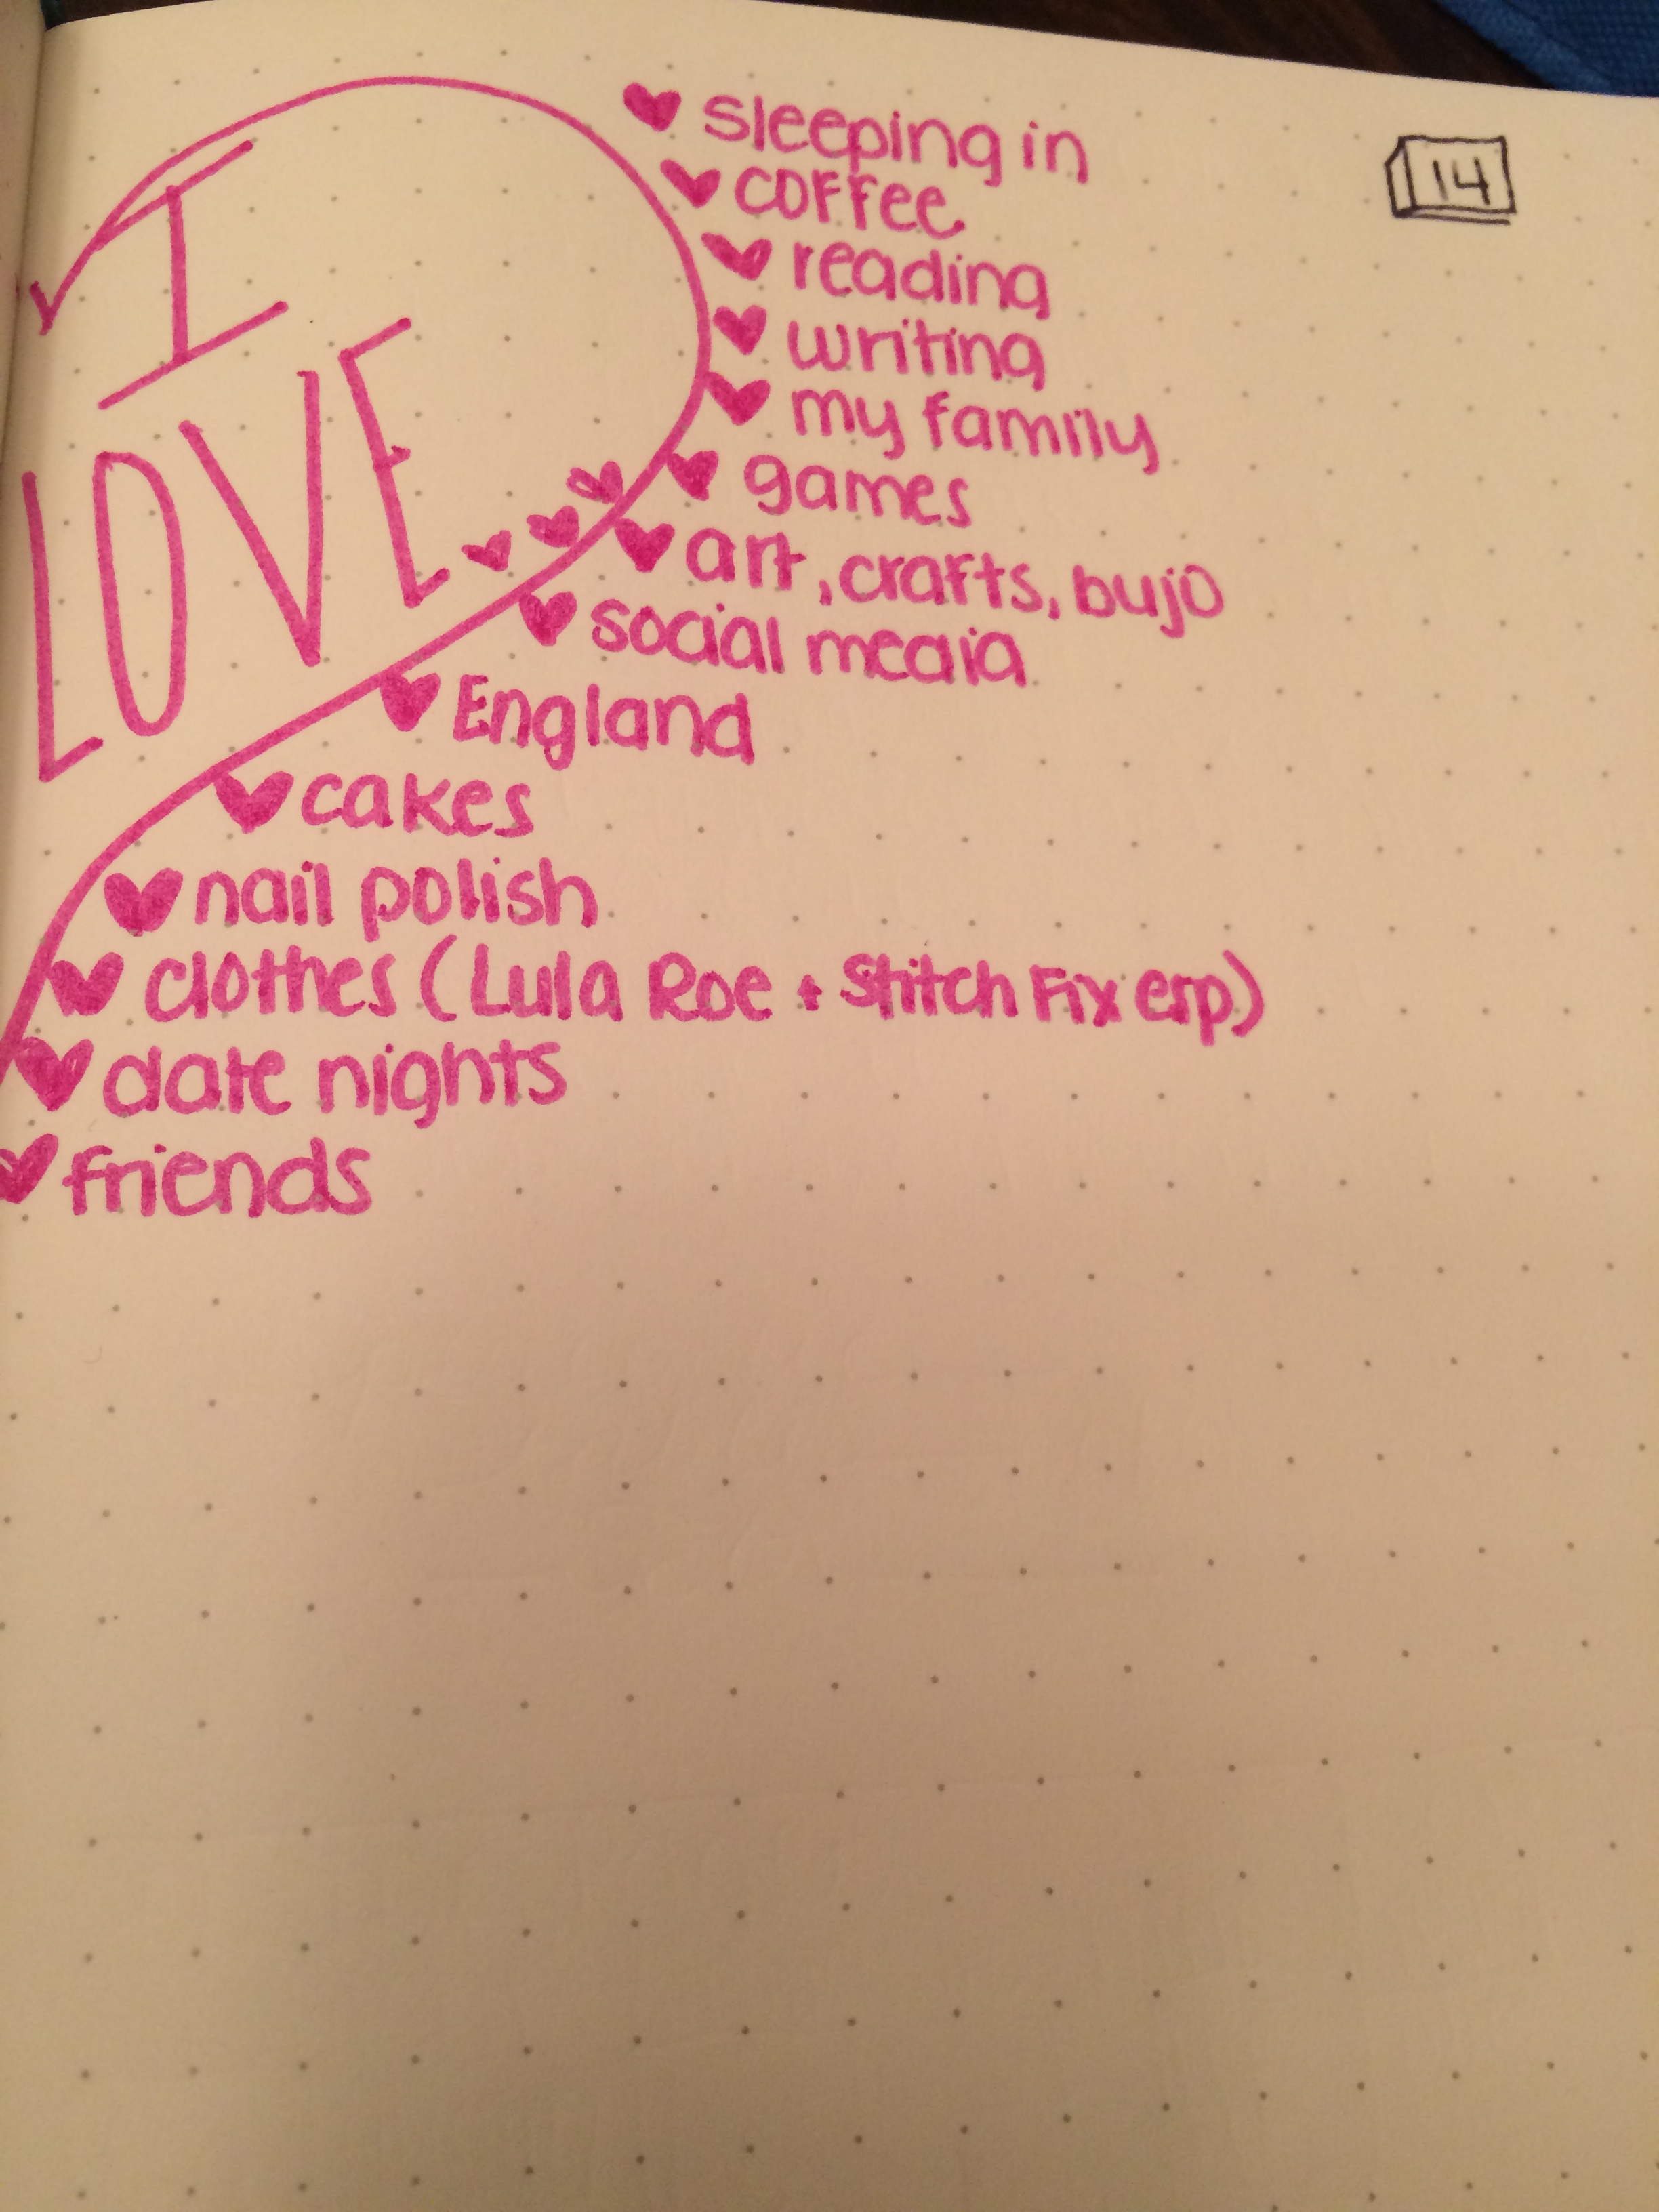 I
LOVE
sleeping in
coffee
reading
writing
my family
games
art, crafts, bujo
social media
England
cakes
nail polish
clothes (Lula Roe + Stitch Fix esp)
date nights
friends
14